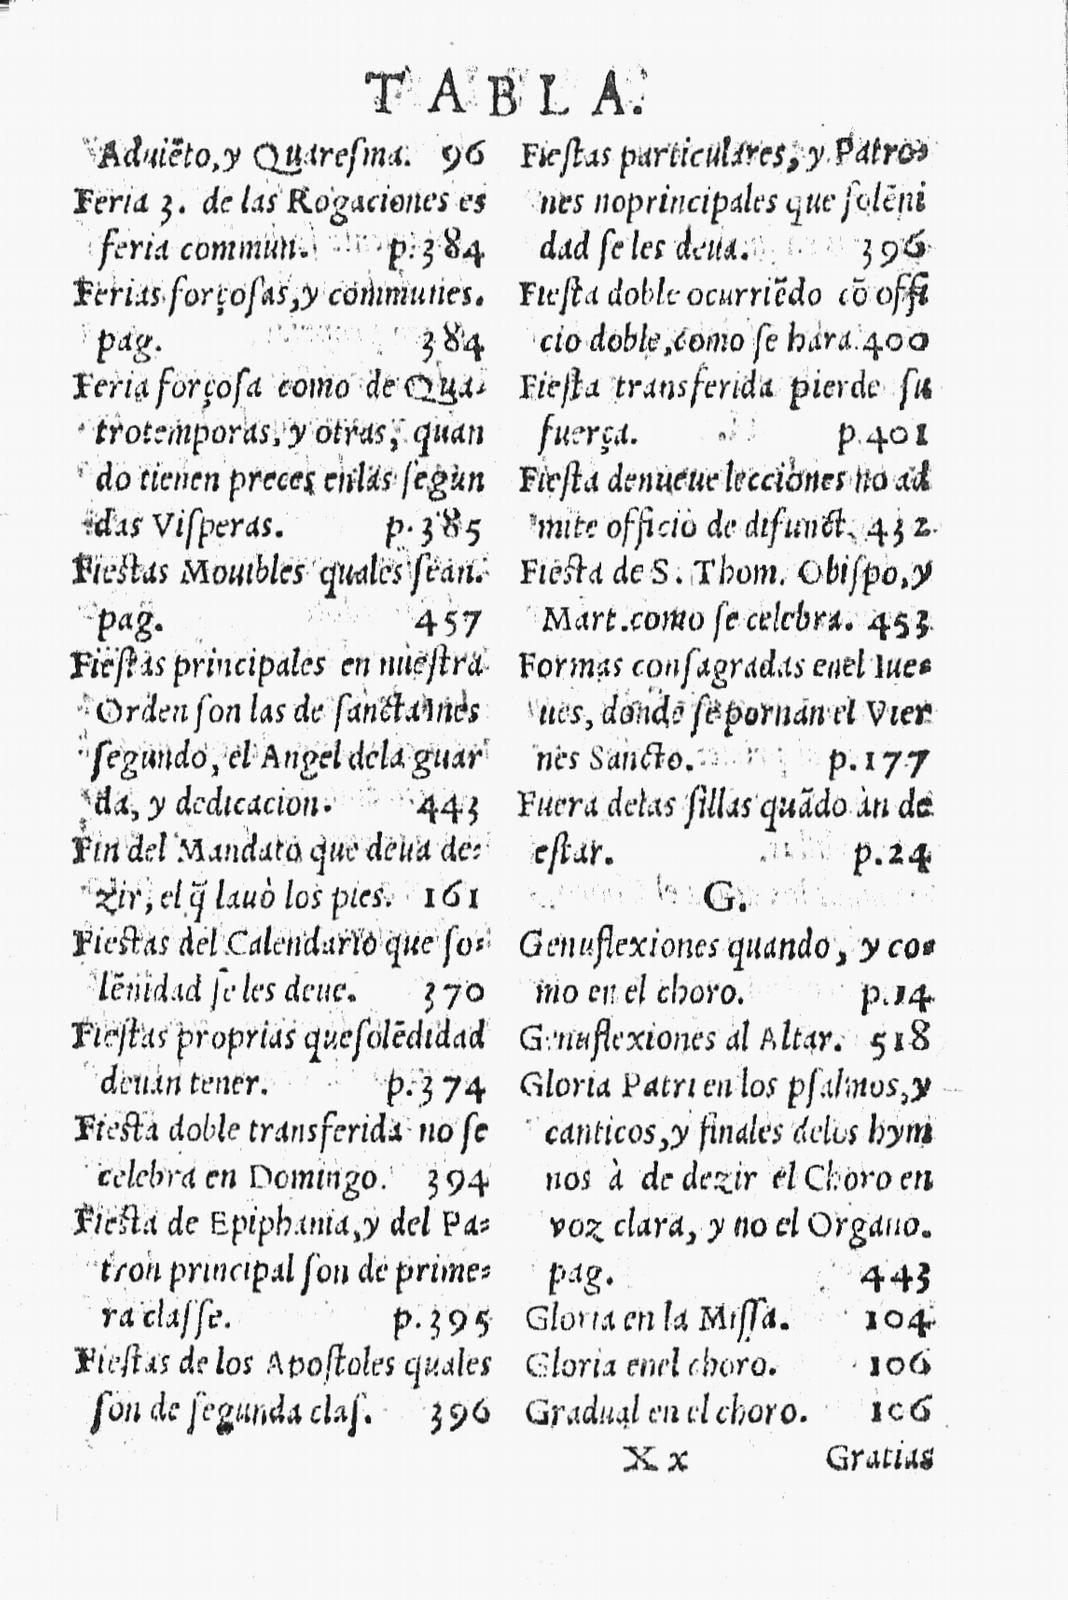 TABLA.
Aduiẽto, y Quaresma. 96
Feria 3. de las Rogaciones es
feria commun. p.384
Ferias forçosas, y communes.
pag. 384
Feria forçosa como de Qua-
trotemporas, y otras, quan
do tienen preces enlas segun
das Visperas. p.385
Fiestas Mouibles quales sean.
pag. 457
Fiestas principales en nuestra
Orden son las de sancta Ines
segundo, el Angel dela guar
da, y dedicacion. 443
Fin del Mandato que deua de-
zir, el q̃ lauò los pies. 161
Fiestas del Calendario que so-
lẽnidad se les deue. 370
Fiestas proprias que solẽdidad
deuan tener. p.374
Fiesta doble transferida no se
celebra en Domingo. 394
Fiesta de Epiphania, y del Pa-
tron principal son de prime-
ra classe. p.395
Fiestas de los Apostoles quales
son de segunda clas. 396
Fiestas particulares, y Patro-
nes noprincipales que solẽni
dad se les deua. 396
Fiesta doble ocurriẽdo cõ offi
cio doble, como se hara. 400
Fiesta transferida pierde su
fuerça. p.401
Fiesta denueue lecciones no ad
mite officio de difunct. 432
Fiesta de S. Thom. Obispo, y
Mart. como se celebra. 453
Formas consagradas enel Iue-
ues, donde se pornan el Vier
nes Sancto. p.177
Fuera delas sillas quãdo àn de
estar. p.24
G.
Genuflexiones quando, y co-
mo en el choro. p.14
Genuflexiones al Altar. 518
Gloria Patri en los psalmos, y
canticos, y finales delos hym
nos à de dezir el Choro en
voz clara, y no el Organo.
pag. 443
Gloria en la Missa. 104
Gloria enel choro. 106
Gradual en el choro. 106
Xx Gratias